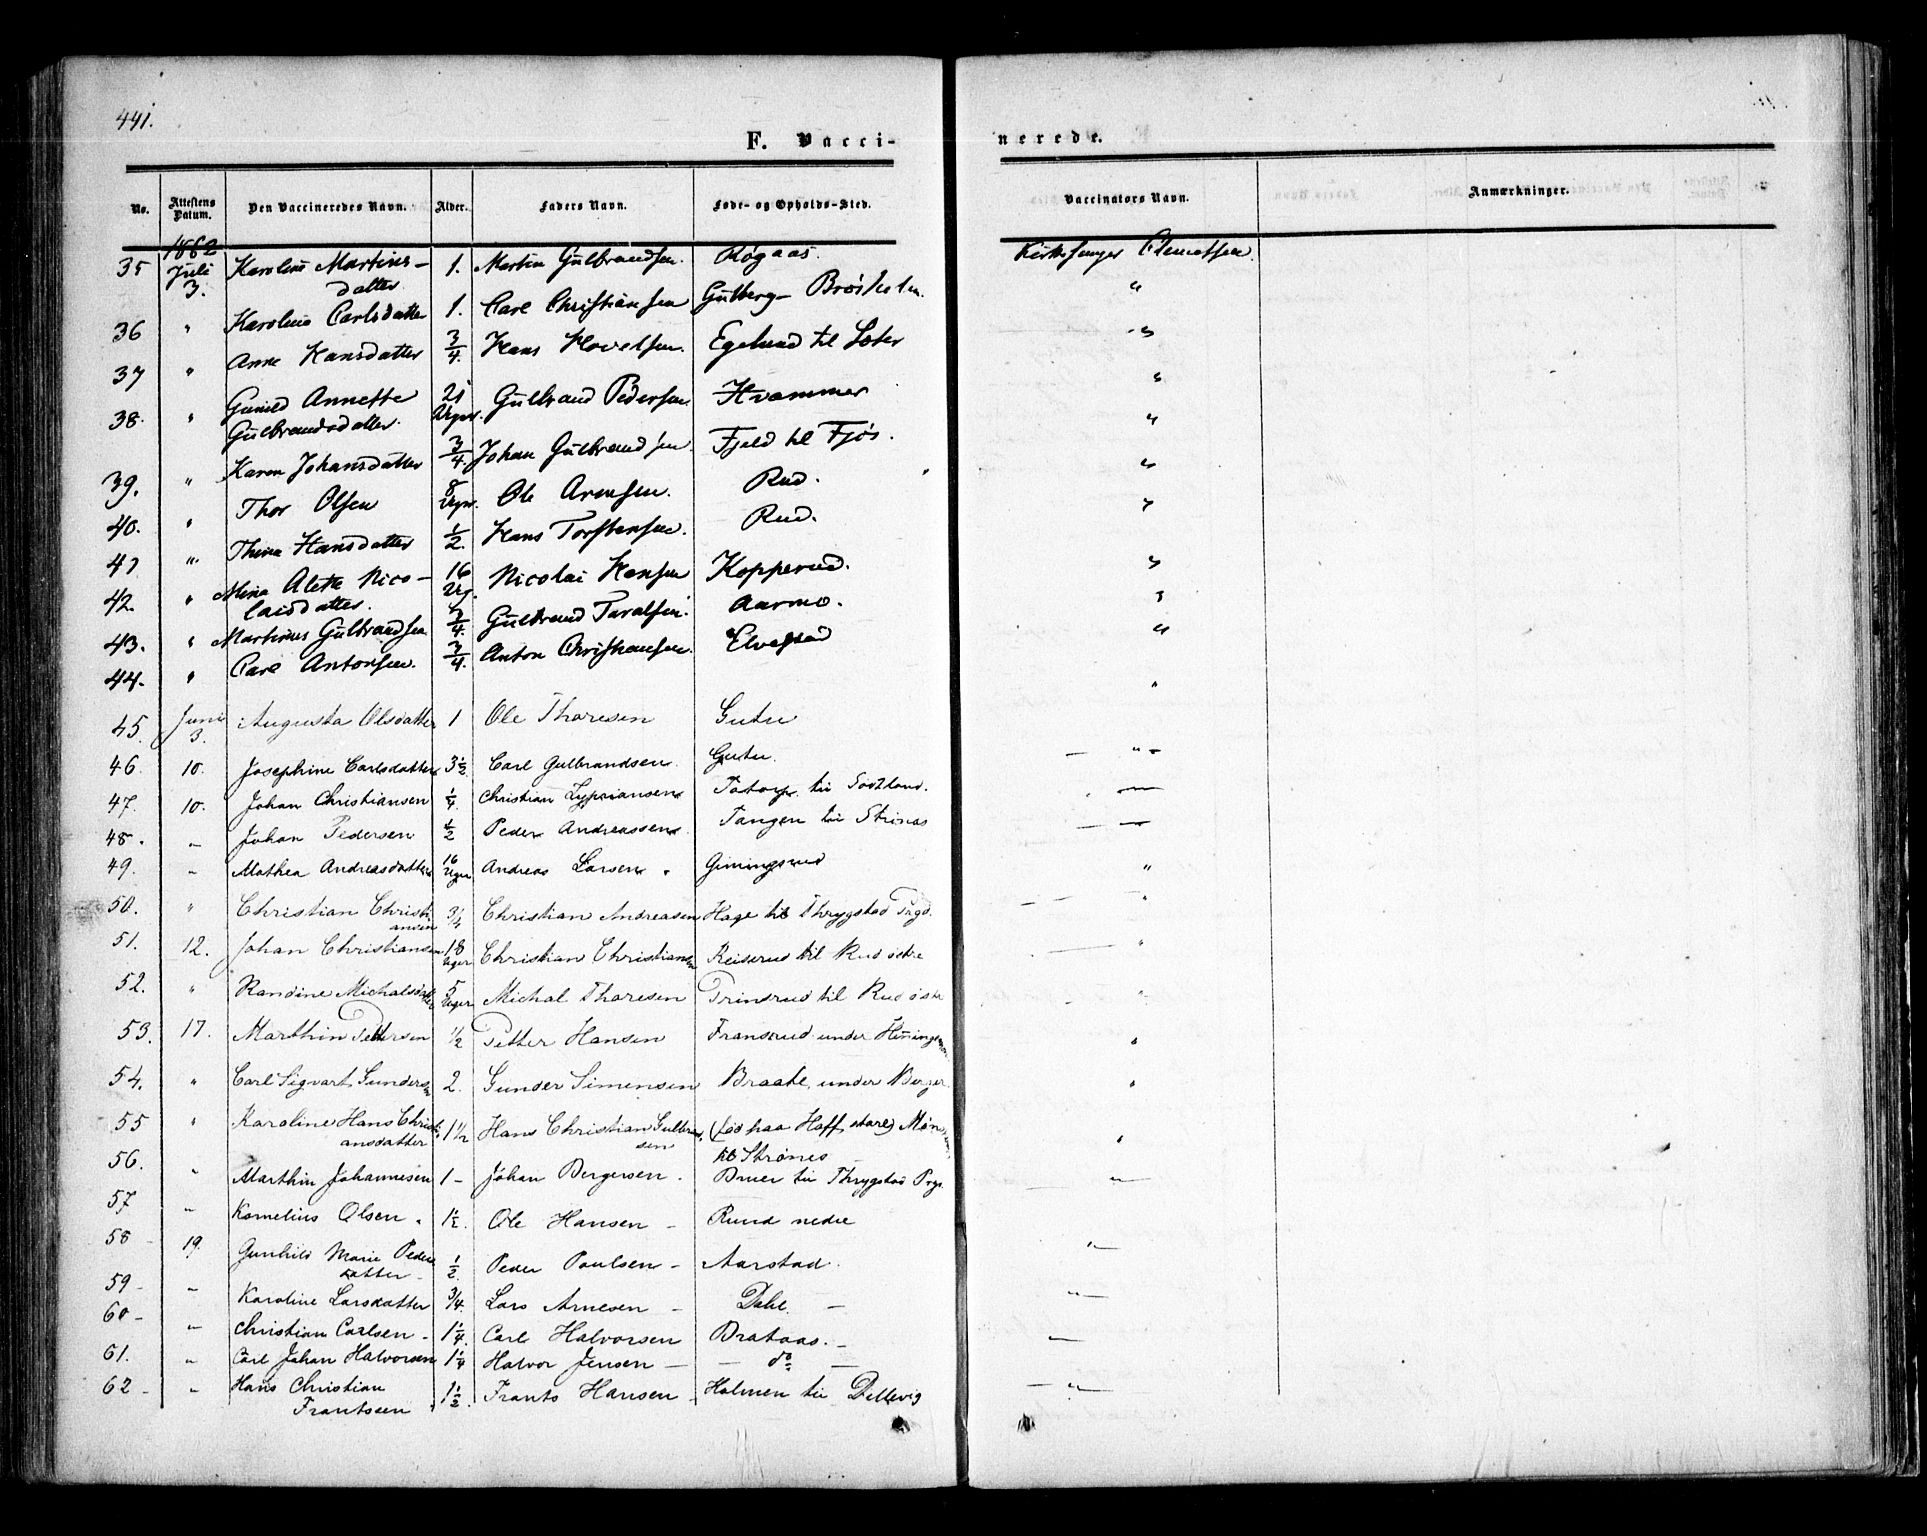 441.
F. Vacci-
nerede.
No. | Attestens Datum. | Den Vaccineredes Navn. | Alder. | Faders Navn. | Føde- og Opholds-Sted. | Vaccinators Navn. | Anmærkninger.
35 | 1862 Juli 3. | Karoline Martins-datter | 1. | Martin Gulbrandsen. | Røgaas. | Kirkesanger Clemetsen
36 | " | Karoline Carlsdatter | 1. | Carl Christiansen | Gutberg- Brøsholm. | "
37 | " | Anne Hansdatter | 3/4. | Hans Hovelsen. | Egelund til Sæter | "
38. | " | Gunild Annette Gulbrandsdatter. | 21 Uger. | Gulbrand Pedersen | Hvammer | "
39. | " | Karen Johansdatter | 3/4. | Johan Gulbrandsen | Fjeld til Fjøs. | "
40. | " | Thor Olsen | 8 Uger. | Ole Arensen. | Rud. | "
41 | " | Thina Hansdatter | 1/2. | Hans Torstensen. | Rud. | "
42. | " | Mina Alette Nico-laisdatter. | 16 Ug. | Nicolai Hansen | Kopperud. | "
43. | " | Martinus Gulbrandsen | 3/4. | Gulbrand Taralsen | Aarmo. | "
44. | " | Carl Antonsen. | 3/4. | Anton Christiansen. | Elvestad | "
45. | Juni 3. | Augusta Olsdatter | 1 | Ole Thoresen | Gutu | "
46. | 10. | Josephine Carlsdatter | 3 1/2. | Carl Gulbrandsen. | Gutu. | — " —
47. | 10. | Johan Christiansen | 1/4. | Christian Sypriansen | til | —
48. | " | Johan Pedersen | 1/2 | Peder Andreassen. | Tangen til Strønes | — —
49. | " | Mathea Andreasdatter | 16 Uger | Andreas Larsen | Gimingsrud | "
50. | " | Christian Christiansen | 3/4 | Christian Andreasen | Hage til Thrygstad Prgd. | "
51. | 12. | Johan Christiansen | 18 Uger | Christian Christiansen | Reiserud til Rud østre | "
52. | " | Randine Michalsdatter | 5 Uger | Michal Thoresen | Trinsrud til Rud østre | "
53. | 17. | Marthin Pettersen | 1/2 | Petter Hansen | Fransrud under | "
54. | " | Carl Sigvart Gundersen | 2. | Gunder Simensen | Braate, under Berger | "
55 | " | Karoline Hans Christiansdatter | 1 1/2 | Hans Christian Gulbrandsen | (fød paa Hoff store) til Strønes | "
56. | " | Marthin Johannesen | 1 - | Johan Bergersen. | Bruer til Thrygstad Prgj. | — " —
57 | " | Kornelius Olsen | 1 1/2. | Ole Hansen - | Ruud nedre
58 - | 19. | Gunhild Marie Peders datter - | 1/2. | Peder Poulsen - | Aarstad. | " —
59 - | " | Karoline Larsdatter | 3/4. | Lars Arnesen - | Dahl. - | — " —
60 - | " | Christian Carlsen - | 1 1/4. | Carl Halvorsen | Brataas. - | —
61. | " | Carl Johan Halvorsen | 1 1/4 | Halvor Jensen - | - do -
62 - | " | Hans Christian Frantsen | 1 1/2. | Frants Hansen - | Holmen til Dellevig | — " —